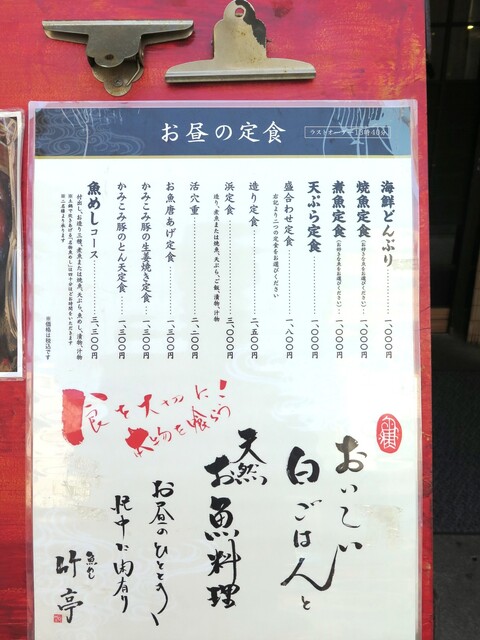 お昼の定食
ラストオーダー 13時40分
海鮮どんぶり 一、〇〇〇円
焼魚定食(お好きな魚をお選びください) 一、〇〇〇円
煮魚定食(お好きな魚をお選びください) 一、〇〇〇円
天ぷら定食 一、〇〇〇円
盛合わせ定食 一、八〇〇円
右記より二つの定食をお選びください
造り定食 二、五〇〇円
浜定食 三、〇〇〇円
造り、煮魚または焼魚、天ぷら、ご飯、漬物、汁物
活穴重 二、二〇〇円
お魚唐あげ定食 一、三〇〇円
かみこみ豚の生姜焼き定食 一、三〇〇円
かみこみ豚のとん天定食 一、三〇〇円
魚めしコース 三、三〇〇円
付出し、お造り三種、煮魚または焼魚、天ぷら、魚めし、漬物、汁物
※二名様より承ります
※価格は税込です
食を大切に!
本物を喰らう
おいしい
白ごはんと
天然
お魚料理
お昼のひととき
忙中に閑有り
魚めし
竹亭